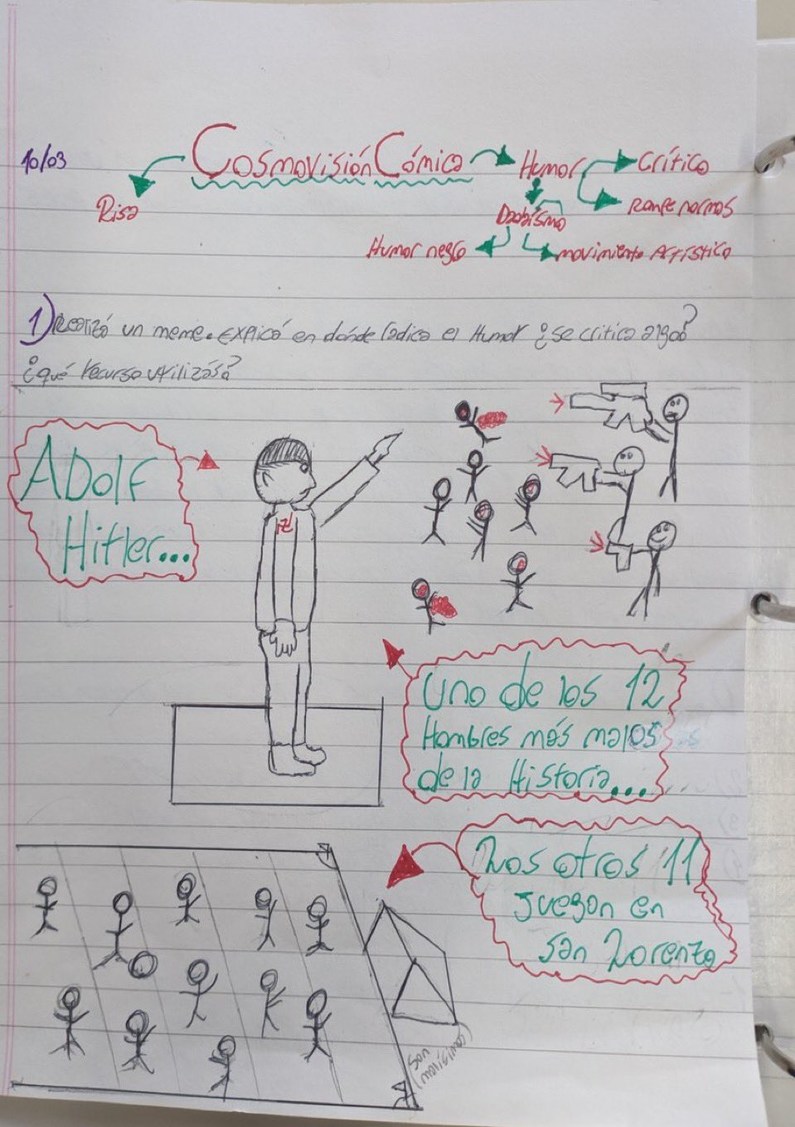 10/03
Cosmovisión Cómica
Humor
Crítico
Risa
Rompe normas
Dadaísmo
Humor negro
movimiento Artístico
1) Realizá un meme. Explicá en dónde radica el Humor ¿se critica algo?
¿qué recurso utilizás?
ADolf
Hitler...
uno de los 12
Hombres más malos
de la Historia...
Los otros 11
juegan en
San Lorenzo
son
(malísimos)